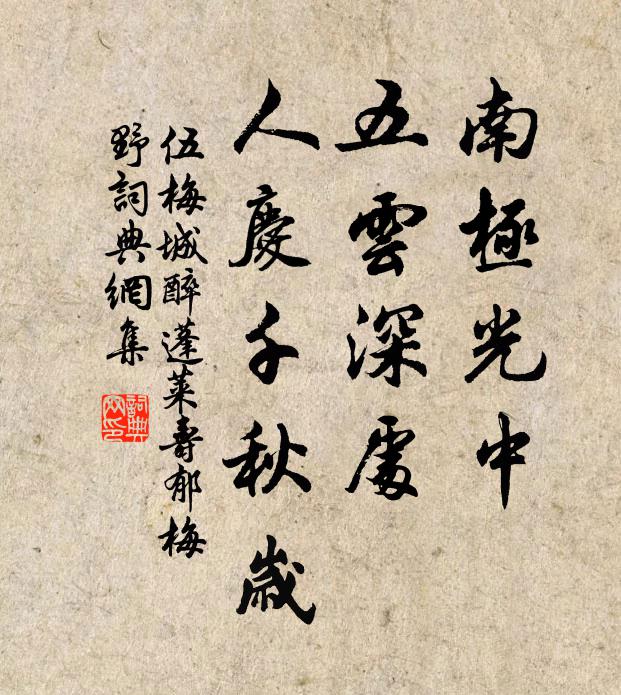 南極光中
五雲深處
人慶千秋歲
伍梅城醉蓬萊壽郁梅
野詞典網集
詞典
网印